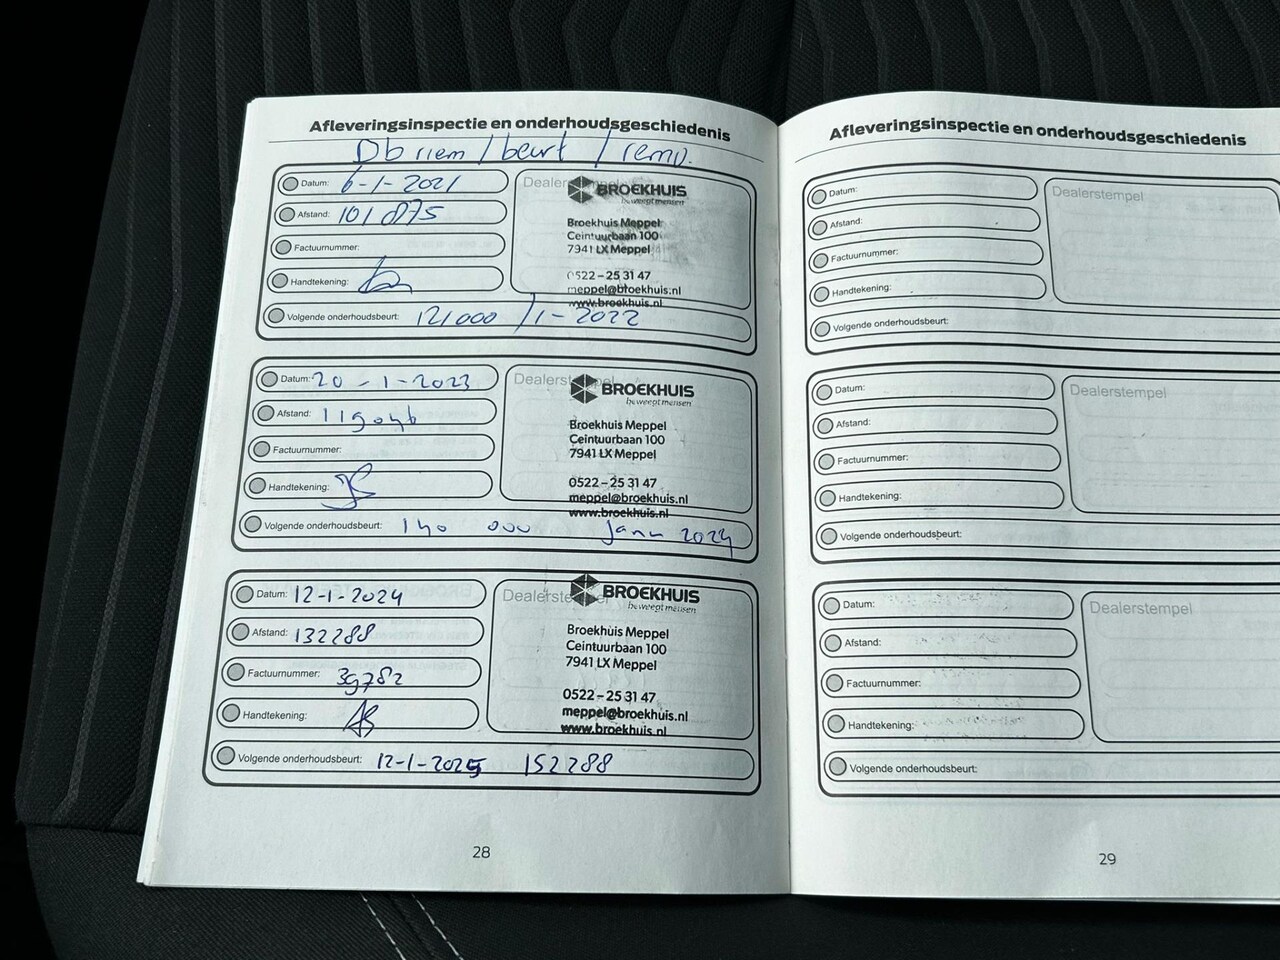 Afleveringsinspectie en onderhoudsgeschiedenis
Db riem / beurt / remv.
Datum: 6-1-2021
Afstand: 101875
Factuurnummer:
Handtekening:
Volgende onderhoudsbeurt: 121000 / 1-2022
Dealerstempel
BROEKHUIS
beweegt mensen
Broekhuis Meppel
Ceintuurbaan 100
7941 LX Meppel
0522-25 31 47
meppel@broekhuis.nl
www.broekhuis.nl
Datum: 20-1-2023
Afstand:
Factuurnummer:
Handtekening:
Volgende onderhoudsbeurt: 140 000 Janu 2024
Dealerstempel
BROEKHUIS
beweegt mensen
Broekhuis Meppel
Ceintuurbaan 100
7941 LX Meppel
0522-25 31 47
meppel@broekhuis.nl
www.broekhuis.nl
Datum: 12-1-2024
Afstand: 132288
Factuurnummer: 39782
Handtekening:
Volgende onderhoudsbeurt: 12-1-2025 152288
Dealerstempel
BROEKHUIS
beweegt mensen
Broekhuis Meppel
Ceintuurbaan 100
7941 LX Meppel
0522-25 31 47
meppel@broekhuis.nl
www.broekhuis.nl
28
Afleveringsinspectie en onderhoudsgeschiedenis
Datum:
Afstand:
Factuurnummer:
Handtekening:
Volgende onderhoudsbeurt:
Dealerstempel
Datum:
Afstand:
Factuurnummer:
Handtekening:
Volgende onderhoudsbeurt:
Dealerstempel
Datum:
Afstand:
Factuurnummer:
Handtekening:
Volgende onderhoudsbeurt:
Dealerstempel
29